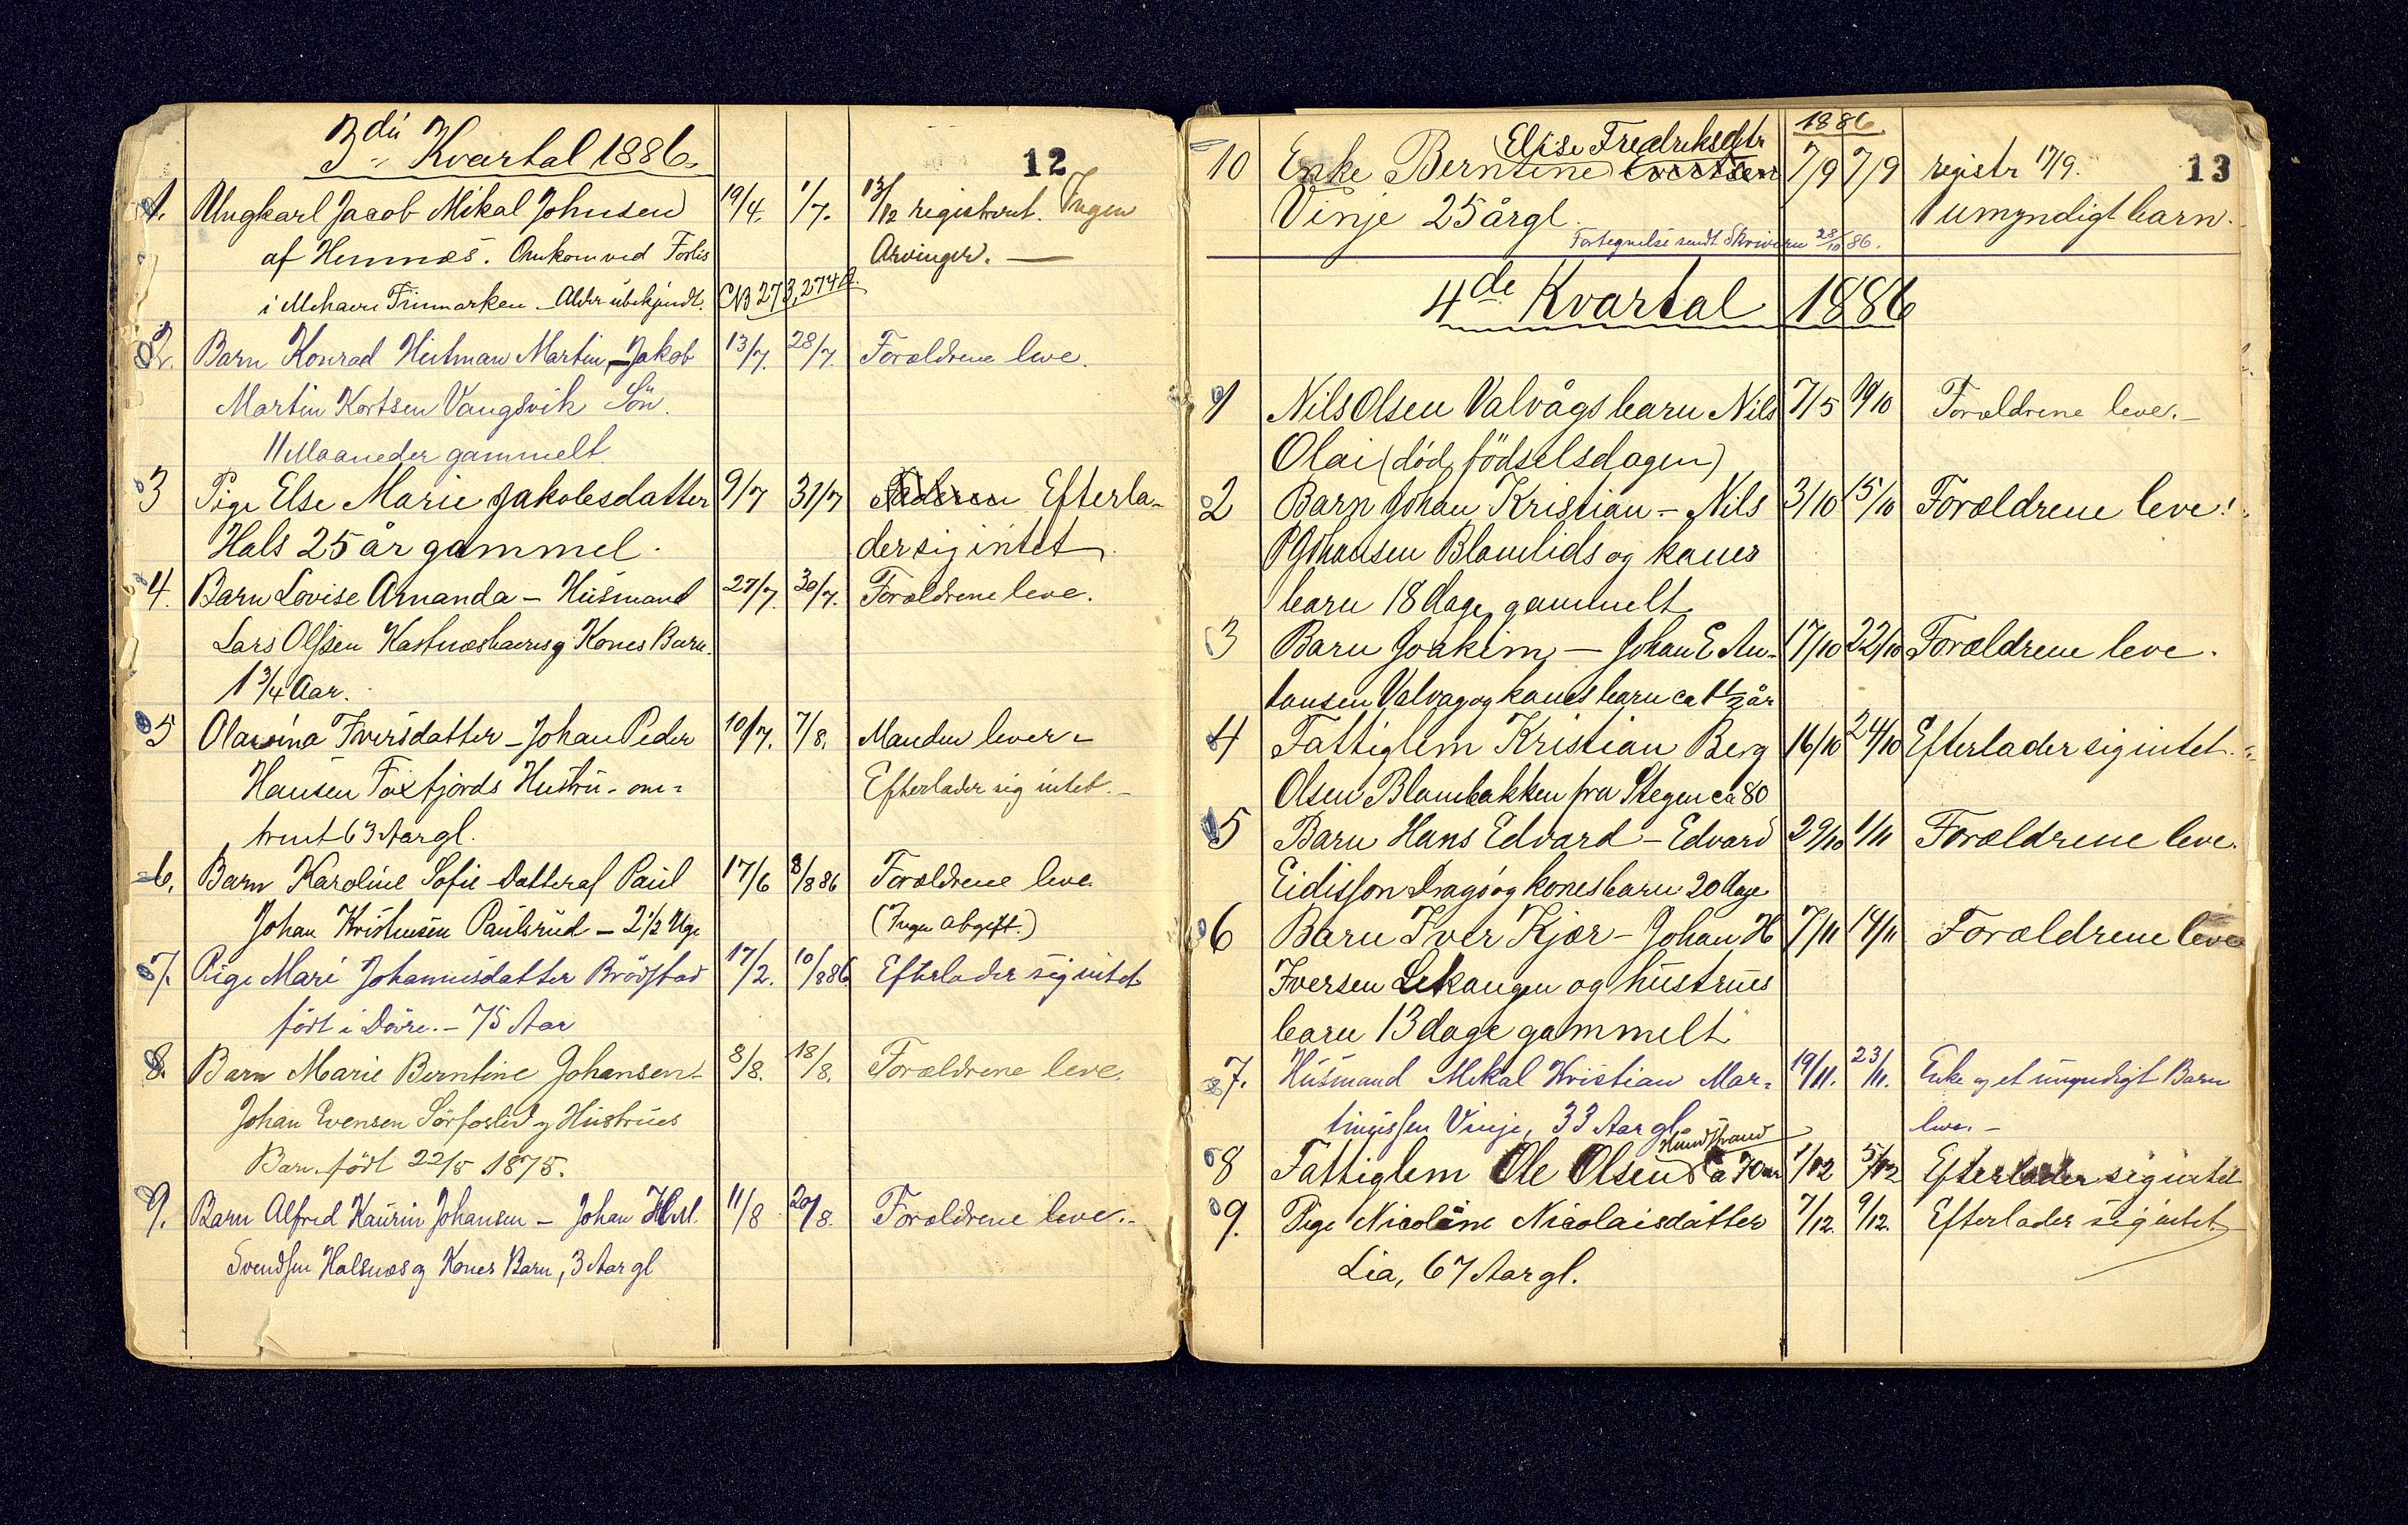 3die Kvartal 1886.
12
1. Ungkarl Jacob Mikal Johnsen 19/4. 1/7. 13/12 registreret. Ingen
af Hemnæs. Omkom ved Forlis Arvinger. —
i Mehavn Finmarken – Alder ubekjendt. CNB 273, 274
2. Barn Konrad Martin, – Jakob 13/7. 28/7. Forældrene leve.
Martin Kortsen Vangsvik Sön.
11 Maaneder gammelt.
3 Pige Else Marie Jakobsdatter 9/7 31/7 Efterla-
Hals 25 år gammel. der sig intet.
4. Barn Lovise Amanda – Husmand 27/7. 30/7. Forældrene leve.
Lars Olssen og Kones Barn.
1 3/4 Aar.
5 Iversdatter – Johan Peder 10/7. 7/8. Manden lever –
Hansen Foxfjords Hustru – om-
trent 63 Aar gl. Efterlader sig intet. –
6. Barn Karoline Sofie – Datter af Paul 17/6 8/8 86 Forældrene leve.
Johan Kristensen Paulsrud – 2 1/2 Uge (Ingen Afgift.)
7. Pige Mari Johannesdatter Brödstad 17/2. 10/8 86 Efterlader sig intet
födt i Dovre. – 75 Aar
8. Barn Marie Berntine Johansen – 8/8. 18/8. Forældrene leve.
Johan Evensen Sörforslid og Hustrues
Barn – födt 22/5 1875.
9. Barn Alfred Kaurin Johansen – Johan 11/8 20/8. Forældrene leve. –
Svendsen Halsnæs og Kones Barn, 3 Aar gl
1886
13
Elise Fredriksdtr
10 Enke Berntine Evertsen 7/9 7/9 registr 17/9.
Vinje 25 år gl. 1 umyndigt barn.
Fortegnelse sendt Skriveren 28/10 86.
4de Kvartal 1886
1 Nils Olsen Valvågs barn Nils 7/5 19/10 Forældrene leve. –
Olai (död födselsdagen)
2 Barn Johan Kristian – Nils 3/10 15/10 Forældrene leve!
P Johansen Blamlids og kones
barn 18 dage gammelt
3 Barn Joakim – Johan E An- 17/10 22/10 Forældrene leve.
tonsen Valvag og kones barn ca 1 1/2 år
4 Fattiglem Kristian Berg 16/10 24/10 Efterlader sig intet. –
Olsen Blambakken fra Stegen ca 80
5 Barn Hans Edvard – Edvard 29/10 1/11 Forældrene leve.
Eidissön Dragsö og kones barn 20 dage
6 Barn Iver Kjær – Johan H 7/11 14/11 Forældrene leve
Iversen Lekangen og hustrues
barn 13 dage gammelt
7. Husmand Mikal Kristian Mar- 19/11. 23/11. Enke og et umyndigt Barn
tinussen Vinje, 33 Aar gl. leve. –
Hundstrand
8 Fattiglem Ole Olsen ca 70 aar 1/12 5/12 Efterlader sig intet
9. Pige Nicoline Nicolaisdatter 7/12. 9/12. Efterlader sig intet
Lia, 67 Aar gl.